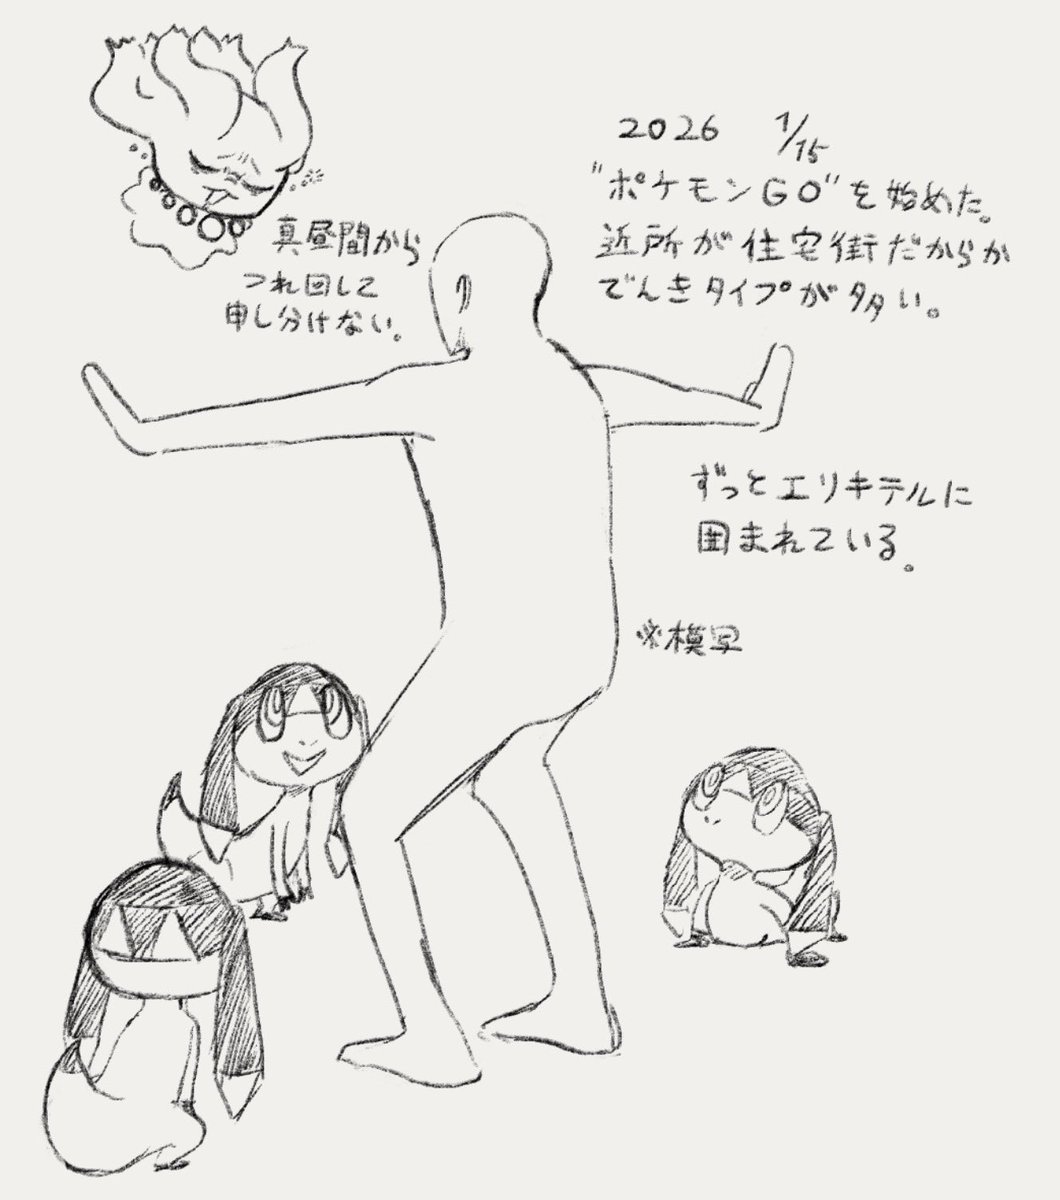 2026 1/15
"ポケモンGO"を始めた。
近所が住宅街だからか
でんきタイプが多い。
真昼間から
つれ回して
申し分けない。
ずっとエリキテルに
囲まれている。
※模写